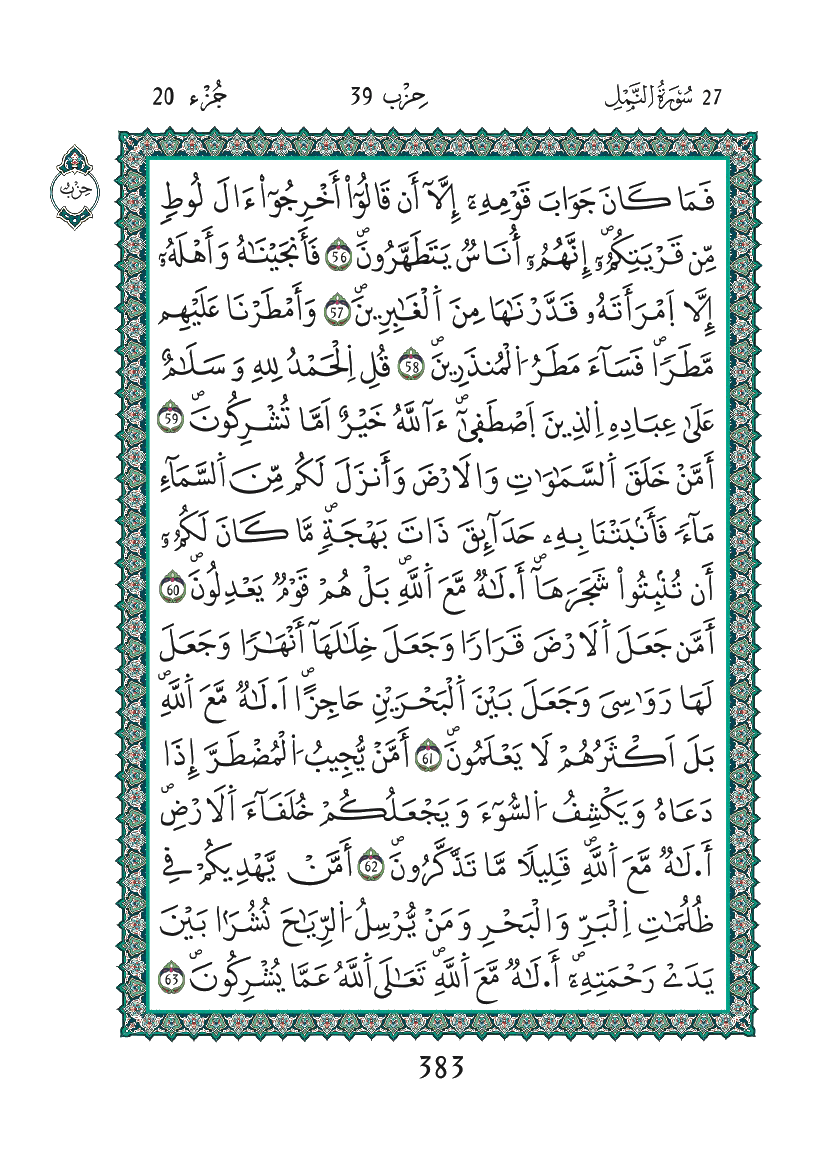 27 سُورَةُ النَّمْلِ حِزْب 39 جُزْء 20
حِزْب
فَمَا كَانَ جَوَابَ قَوْمِهِۦٓ إِلَّآ أَن قَالُوٓاْ أَخْرِجُوٓاْ ءَالَ لُوطٖ
مِّن قَرْيَتِكُمُۥٓۖ إِنَّهُمُۥٓ أُنَاسٞ يَتَطَهَّرُونَۖ 56 فَأَنجَيْنَٰهُ وَأَهْلَهُۥٓ
إِلَّا اَمْرَأَتَهُۥ قَدَّرْنَٰهَا مِنَ اَ۬لْغَٰبِرِينَۖ 57 وَأَمْطَرْنَا عَلَيْهِم
مَّطَراٗۖ فَسَآءَ مَطَرُ اُ۬لْمُنذَرِينَۖ 58 قُلِ اِ۬لْحَمْدُ لِلهِ وَسَلَٰمٌ
عَلَىٰ عِبَادِهِ اِ۬لذِينَ اَ۪صْطَف۪ىٰٓۖ ءَآللَّهُ خَيْرٌ اَمَّا تُشْرِكُونَۖ 59
أَمَّنْ خَلَقَ اَ۬لسَّمَٰوَٰتِ وَالَارْضَ وَأَنزَلَ لَكُم مِّنَ اَ۬لسَّمَآءِ
مَآءٗ فَأَنۢبَتْنَا بِهِۦ حَدَآئِقَ ذَاتَ بَهْجَةٖۖ مَّا كَانَ لَكُمُۥٓ
أَن تُنۢبِتُواْ شَجَرَهَآۖ أَ.لَٰهٞ مَّعَ اَ۬للَّهِۖ بَلْ هُمْ قَوْمٞ يَعْدِلُونَۖ 60
أَمَّن جَعَلَ اَ۬لَارْضَ قَرَاراٗ وَجَعَلَ خِلَٰلَهَآ أَنْهَٰراٗ وَجَعَلَ
لَهَا رَوَٰسِىَ وَجَعَلَ بَيْنَ اَ۬لْبَحْرَيْنِ حَاجِزاًۖ اَ.لَٰهٞ مَّعَ اَ۬للَّهِۖ
بَلَ اَكْثَرُهُمْ لَا يَعْلَمُونَۖ 61 أَمَّنْ يُّجِيبُ اُ۬لْمُضْطَرَّ إِذَا
دَعَاهُ وَيَكْشِفُ اُ۬لسُّوٓءَ وَيَجْعَلُكُمْ خُلَفَآءَ اَ۬لَارْضِۖ
أَ.لَٰهٞ مَّعَ اَ۬للَّهِۖ قَلِيلاٗ مَّا تَذَّكَّرُونَۖ 62 أَمَّنْ يَّهْدِيكُمْ فِے
ظُلُمَٰتِ اِ۬لْبَرِّ وَالْبَحْرِ وَمَنْ يُّرْسِلُ اُ۬لرِّيَٰحَ نُشُراَۢ بَيْنَ
يَدَےْ رَحْمَتِهِۦٓۖ أَ.لَٰهٞ مَّعَ اَ۬للَّهِۖ تَعَٰلَى اَ۬للَّهُ عَمَّا يُشْرِكُونَۖ 63
383